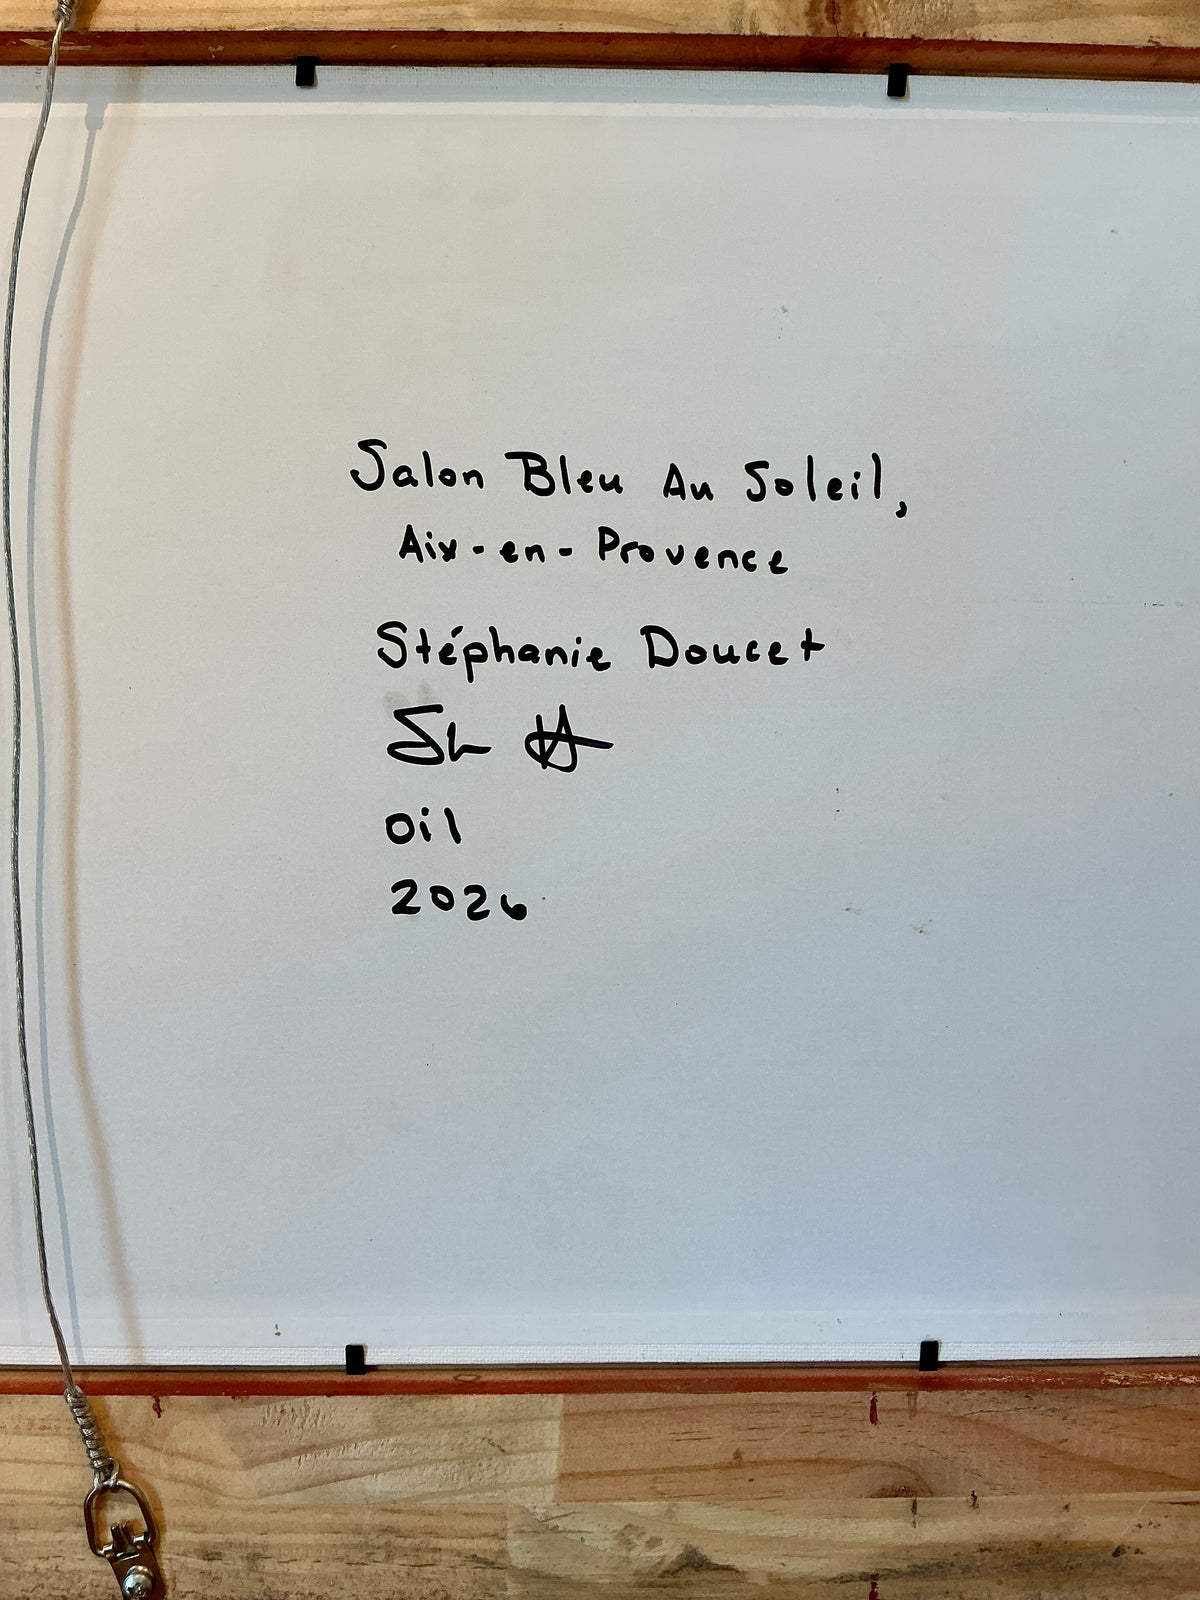 Salon Bleu Au Soleil,
Aix-en-Provence
Stéphanie Doucet
Oil
2026